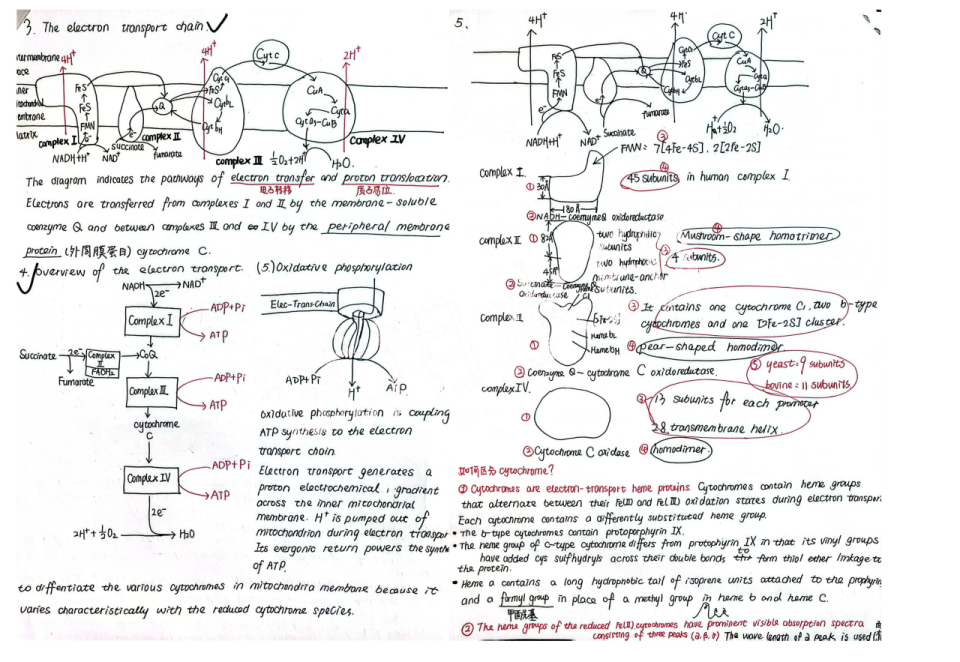 3. The electron transport chain.
4H⁺
4H⁺
Cyt C
2H⁺
FeS
FeS
FMN
e⁻
Q
e⁻
Cyt C₁
FeS
Cyt bL
Cyt bH
CuA
Cyta
Cyta₃-CuB
complex I
complex II
complex III
complex IV
NADH+H⁺
NAD⁺
Succinate
fumarate
½O₂+2H⁺
H₂O.
The diagram indicates the pathways of electron transfer and proton translocation.
电子转移
质子易位
Electrons are transferred from complexes I and II by the membrane-soluble
coenzyme Q and between complexes III and IV by the peripheral membrane
protein (外周膜蛋白) cytochrome C.
4. overview of the electron transport.
NADH
NAD⁺
2e⁻
Complex I
ADP+Pi
ATP
Succinate
2e⁻
Complex II
FADH₂
CoQ
Fumarate
Complex III
ADP+Pi
ATP
cytochrome
C
Complex IV
ADP+Pi
ATP
2e⁻
2H⁺+½O₂
H₂O
(5.) Oxidative phosphorylation
Elec-Trans-Chain
ADP+Pi
H⁺
ATP
oxidative phosphorylation is coupling
ATP synthesis to the electron
transport chain.
Electron transport generates a
proton electrochemical gradient
across the inner mitochondrial
membrane. H⁺ is pumped out of
mitochondrion during electron transpor
Its exergonic return powers the synthe
of ATP.
to diffentiate the various cytochromes in mitochondria membrane because it
varies characteristically with the reduced cytochrome species.
5.
4H⁺
4H⁺
Cyt C
2H⁺
FeS
FeS
FMN
e⁻
Q
FeS
CuA
NADH+H⁺
NAD⁺
Succinate
fumarate
H₂O.
complex I.
① 30Å
180Å
③ FMN: 7[4Fe-4S], 2[2Fe-2S]
④ 45 subunits in human complex I
② NADH-coenzyme Q oxidoreductase
complex II
① 82Å
45Å
two hydrophilic
subunits
two hydrophobic
membrane-anchor
subunits.
③ 4 subunits.
④ Mushroom-shape homotrimer.
② Succinate-coenzyme Q
oxidoreductase
C₁
complex III
①
[2Fe-2S]
Heme bL
Heme bH
③ It contains one cytochrome C₁, two b-type
cytochromes and one [2Fe-2S] cluster.
④ pear-shaped homodimer
⑤ yeast=9 subunits
bovine=11 subunits
② Coenzyme Q-cytochrome C oxidoredutase.
complex IV.
①
③ 13 subunits for each promoter
28 transmembrane helix.
② Cytochrome C oxidase
④ homodimer.
如何区分cytochrome?
① Cytochromes are electron-transport heme proteins. Cytochromes contain heme groups
that alternate between their Fe(II) and Fe(III) oxidation states during electron transpor
Each cytochrome contains a differently substituted heme group.
• The b-type cytochromes contain protoporphyrin IX.
• The heme group of c-type cytochrome differs from protophyrin IX in that its vinyl groups
have added cys sulfhydryls across their double bonds to form thiol ether linkage to
the protein.
• Heme a contains a long hydrophobic tail of isoprene units attached to the prophyrin
and a formyl group in place of a methyl group in heme b and heme C.
甲酰基
② The heme groups of the reduced Fe(II) cytochromes have prominent visible absorption spectra
consisting of three peaks The wave length of a peak is used